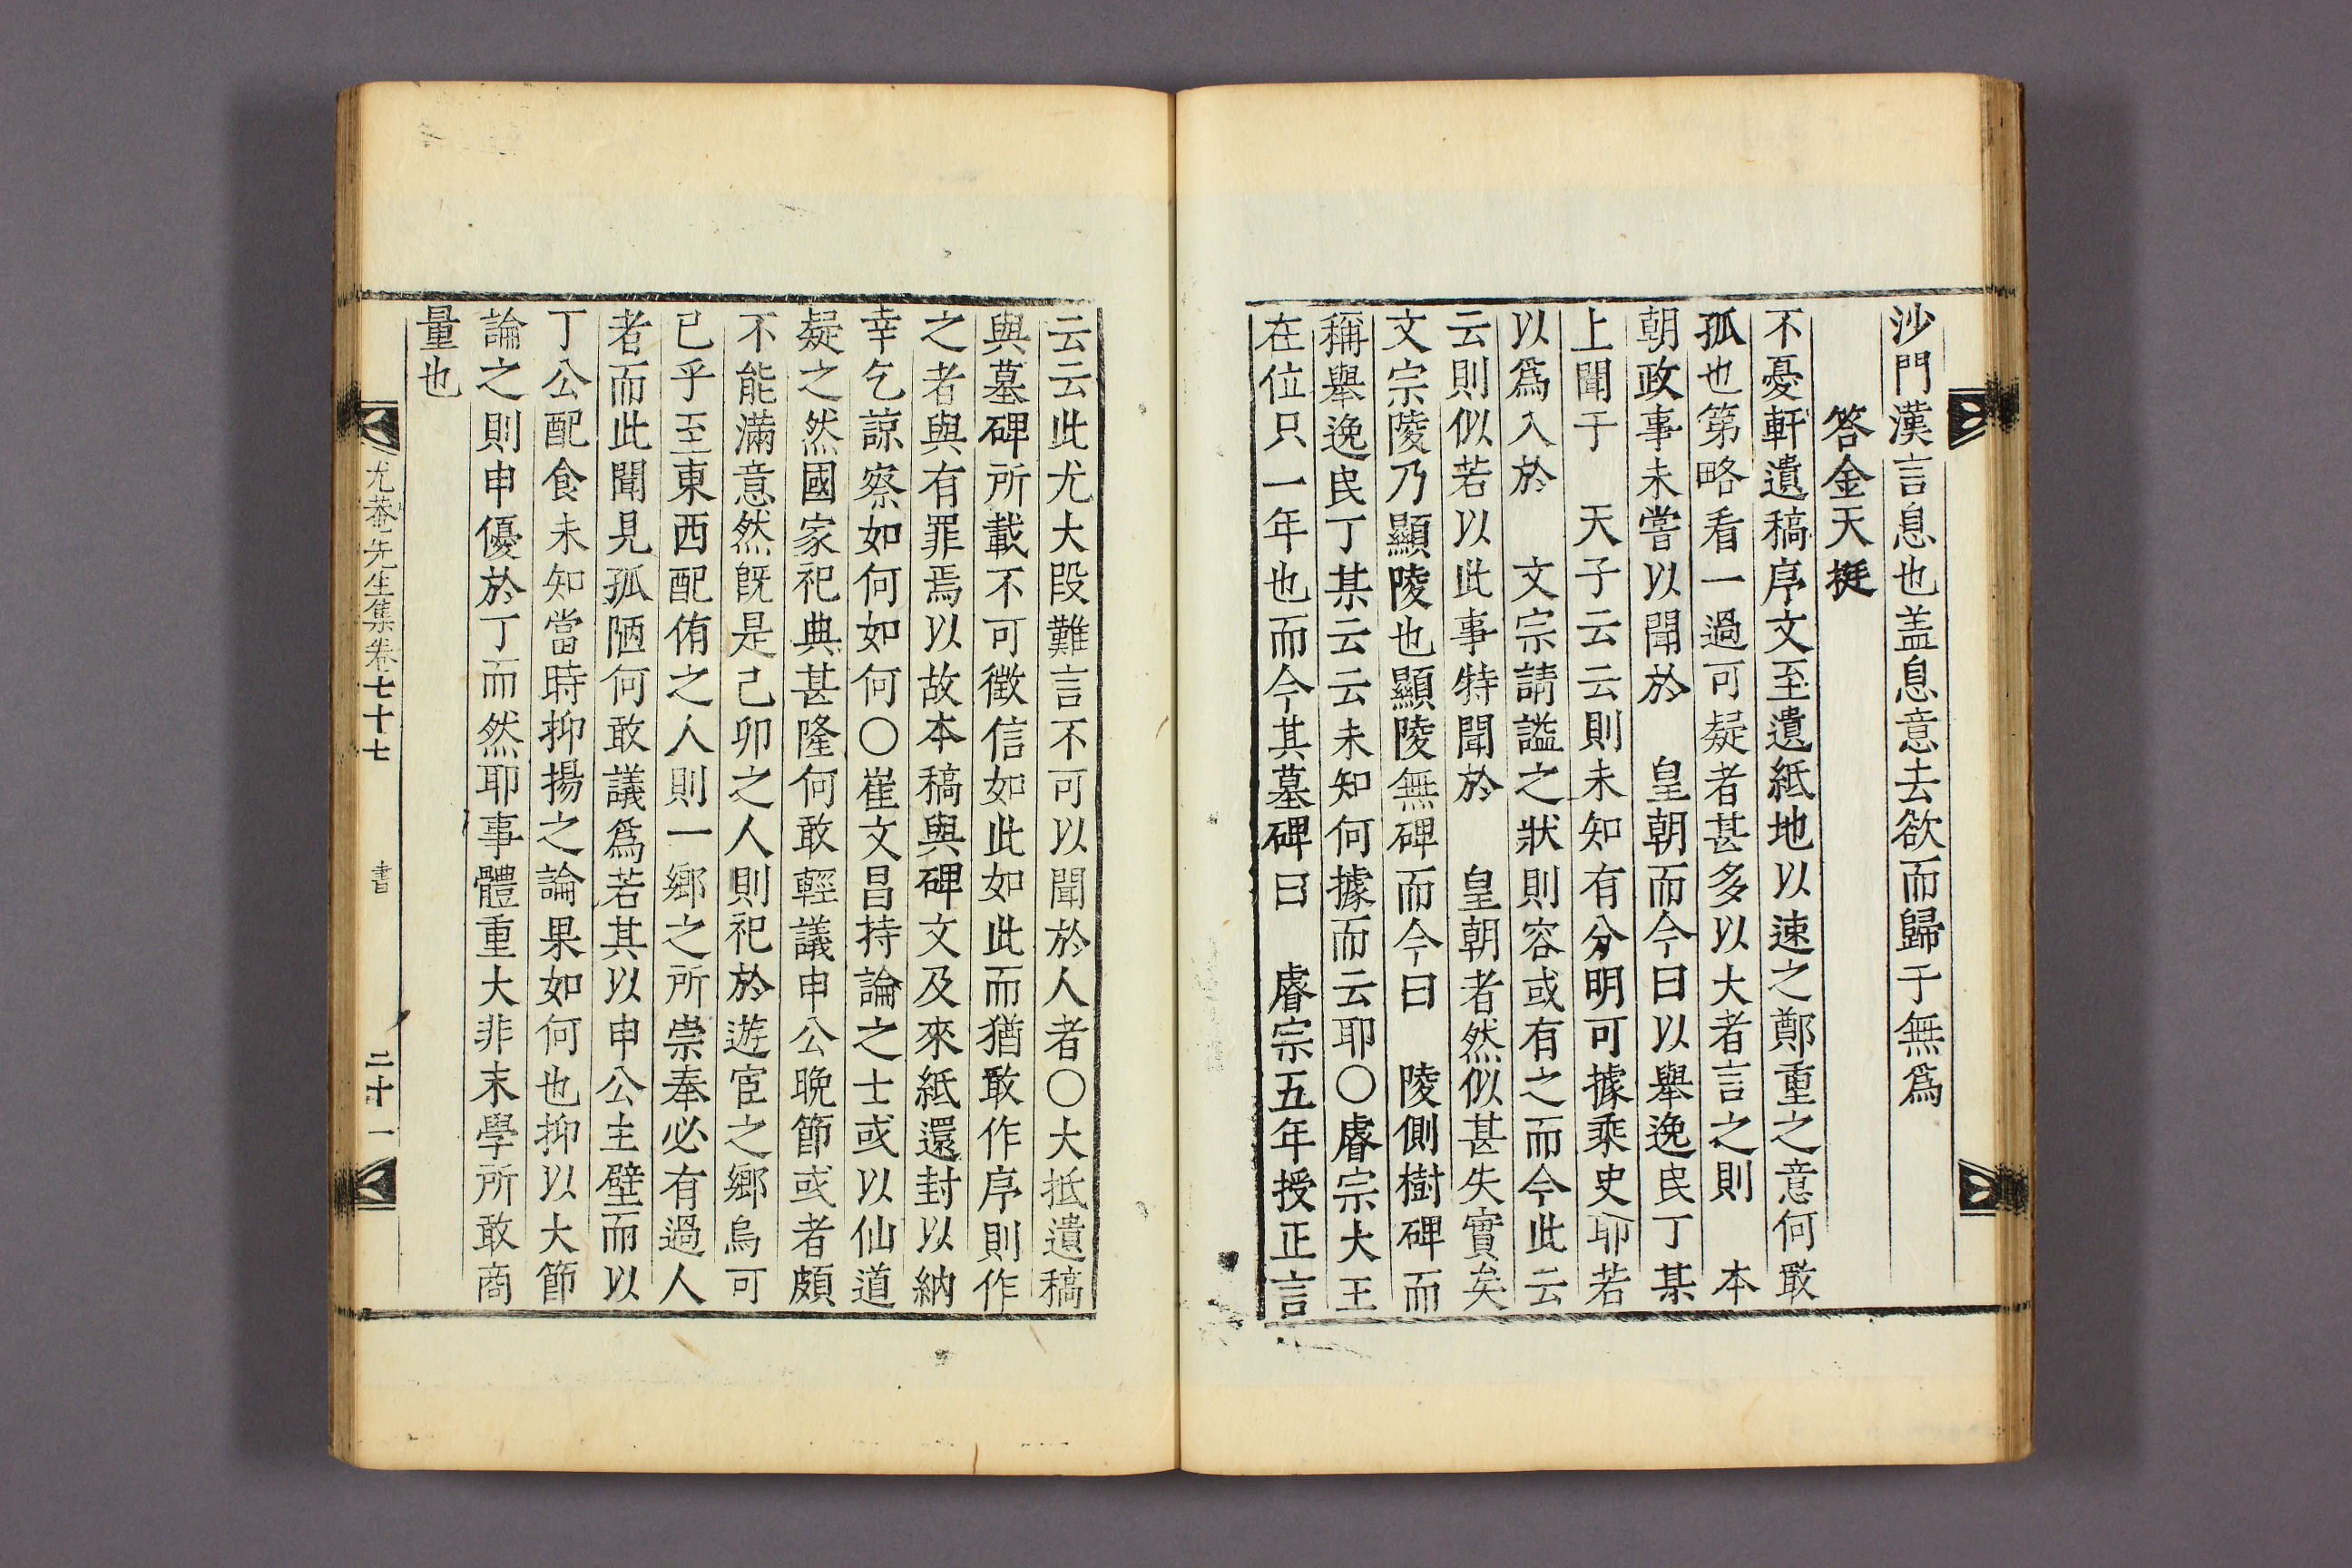 沙門漢言息也盖息意去欲而歸于無爲
答金天挺
不憂軒遺稿序文至遺紙地以速之鄭重之意何敢
孤也第略看一過可疑者甚多以大者言之則 本
朝政事未嘗以聞於 皇朝而今曰以擧逸民丁某
上聞于 天子云云則未知有分明可據乘史耶若
以爲入於 文宗請謚之狀則容或有之而今此云
云則似若以此事特聞於 皇朝者然似甚失實矣
文宗陵乃顯陵也顯陵無碑而今曰 陵側樹碑而
稱擧逸民丁某云云未知何據而云耶○睿宗大王
在位只一年也而今其墓碑曰 睿宗五年授正言
云云此尤大段難言不可以聞於人者○大抵遺稿
與墓碑所載不可徵信如此如此而猶敢作序則作
之者與有罪焉以故本稿與碑文及來紙還封以納
幸乞諒察如何如何○崔文昌持論之士或以仙道
疑之然國家祀典甚隆何敢輕議申公晩節或者頗
不能滿意然旣是己卯之人則祀於遊宦之鄕烏可
已乎至東西配侑之人則一鄕之所崇奉必有過人
者而此聞見孤陋何敢議爲若其以申公主壁而以
丁公配食未知當時抑揚之論果如何也抑以大節
論之則申優於丁而然耶事體重大非末學所敢商
量也
尤菴先生集卷七十七 書 二十一